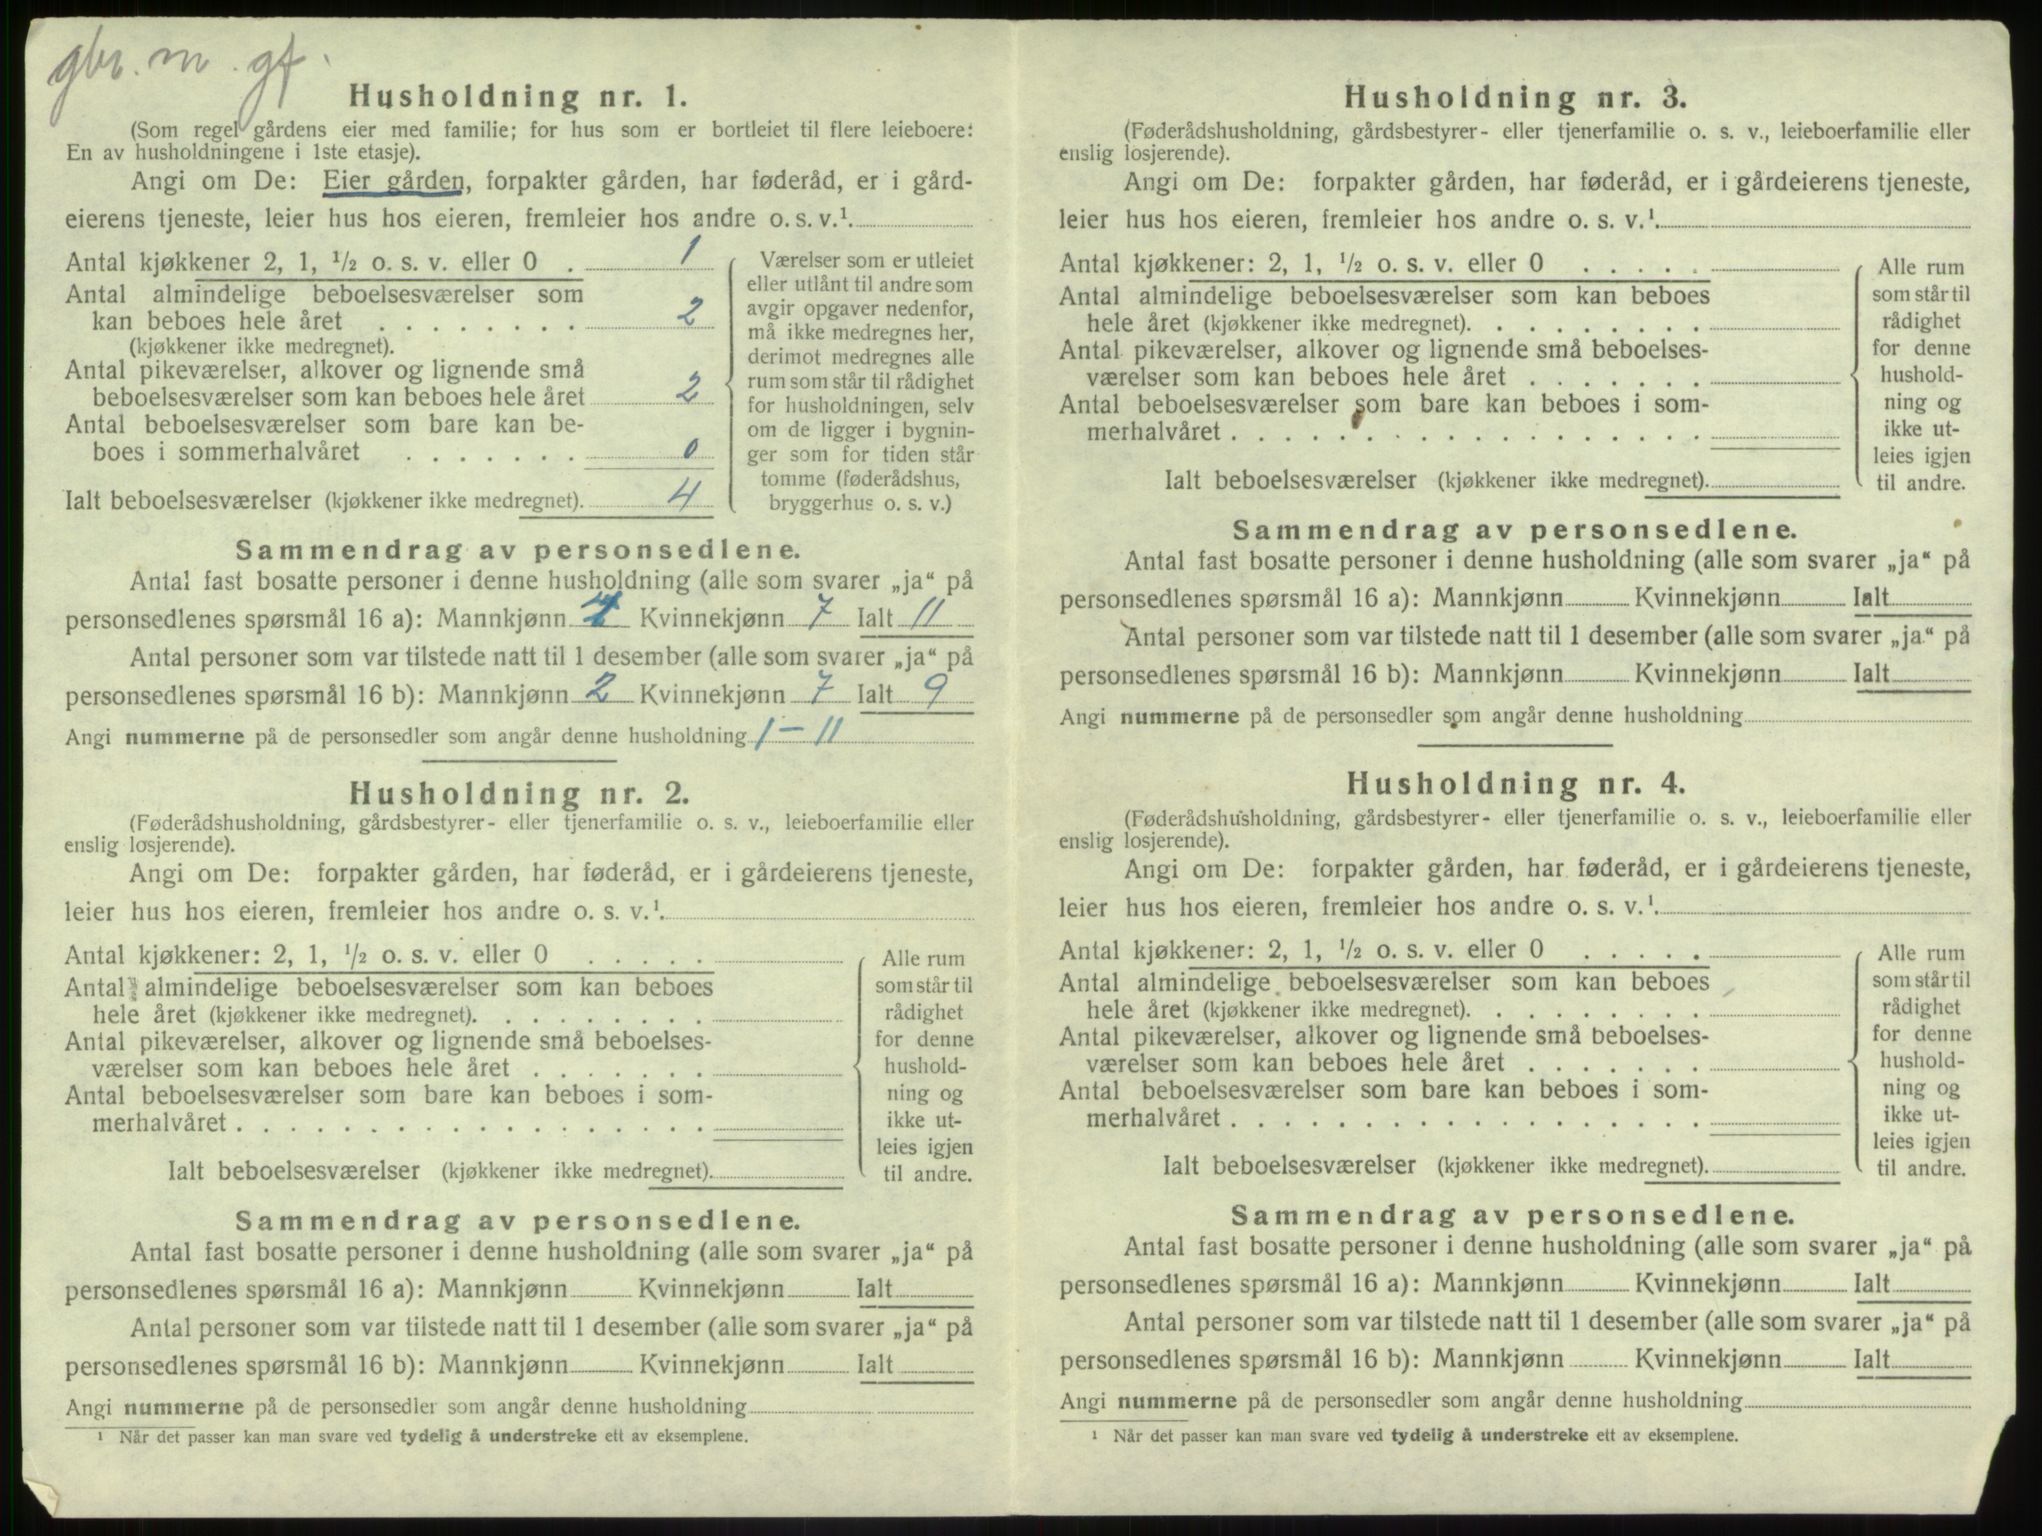 gbr. m. gf.
Husholdning nr. 1.
(Som regel gårdens eier med familie; for hus som er bortleiet til flere leieboere:
En av husholdningene i 1ste etasje).
Angi om De: Eier gården, forpakter gården, har føderåd, er i gård-
eierens tjeneste, leier hus hos eieren, fremleier hos andre o. s. v.¹.
Antal kjøkkener 2, 1, ½ o. s. v. eller 0 . 1
Antal almindelige beboelsesværelser som
kan beboes hele året . . . . . . . . 2
(kjøkkener ikke medregnet).
Antal pikeværelser, alkover og lignende små
beboelsesværelser som kan beboes hele året 2
Antal beboelsesværelser som bare kan be-
boes i sommerhalvåret . . . . . . . 0
Ialt beboelsesværelser (kjøkkener ikke medregnet). 4
Værelser som er utleiet
eller utlånt til andre som
avgir opgaver nedenfor,
må ikke medregnes her,
derimot medregnes alle
rum som står til rådighet
for husholdningen, selv
om de ligger i bygnin-
ger som for tiden står
tomme (føderådshus,
bryggerhus o. s. v.)
Sammendrag av personsedlene.
Antal fast bosatte personer i denne husholdning (alle som svarer „ja“ på
personsedlenes spørsmål 16 a): Mannkjønn 4 Kvinnekjønn 7 Ialt 11
Antal personer som var tilstede natt til 1 desember (alle som svarer „ja“ på
personsedlenes spørsmål 16 b): Mannkjønn 2 Kvinnekjønn 7 Ialt 9
Angi nummerne på de personsedler som angår denne husholdning 1 – 11
Husholdning nr. 2.
(Føderådshusholdning, gårdsbestyrer- eller tjenerfamilie o. s. v., leieboerfamilie eller
enslig losjerende).
Angi om De: forpakter gården, har føderåd, er i gårdeierens tjeneste,
leier hus hos eieren, fremleier hos andre o. s. v.¹.
Antal kjøkkener: 2, 1, ½ o. s. v. eller 0 . . . . .
Antal almindelige beboelsesværelser som kan beboes
hele året (kjøkkener ikke medregnet). . . . . . . . .
Antal pikeværelser, alkover og lignende små beboelses-
værelser som kan beboes hele året . . . . . . .
Antal beboelsesværelser som bare kan beboes i som-
merhalvåret . . . . . . . . . . . . . . . . . .
Ialt beboelsesværelser (kjøkkener ikke medregnet).
Alle rum
som står til
rådighet
for denne
hushold-
ning og
ikke ut-
leies igjen
til andre.
Sammendrag av personsedlene.
Antal fast bosatte personer i denne husholdning (alle som svarer „ja“ på
personsedlenes spørsmål 16 a): Mannkjønn Kvinnekjønn Ialt
Antal personer som var tilstede natt til 1 desember (alle som svarer „ja“ på
personsedlenes spørsmål 16 b): Mannkjønn Kvinnekjønn Ialt
Angi nummerne på de personsedler som angår denne husholdning
¹ Når det passer kan man svare ved tydelig å understreke ett av eksemplene.
Husholdning nr. 3.
(Føderådshusholdning, gårdsbestyrer- eller tjenerfamilie o. s. v., leieboerfamilie eller
enslig losjerende).
Angi om De: forpakter gården, har føderåd, er i gårdeierens tjeneste,
leier hus hos eieren, fremleier hos andre o. s. v.¹.
Antal kjøkkener: 2, 1, ½ o. s. v. eller 0 . . . . .
Antal almindelige beboelsesværelser som kan beboes
hele året (kjøkkener ikke medregnet). . . . . . . . .
Antal pikeværelser, alkover og lignende små beboelses-
værelser som kan beboes hele året . . . . . . .
Antal beboelsesværelser som bare kan beboes i som-
merhalvåret . . . . . . . . . . . . . . . . . .
Ialt beboelsesværelser (kjøkkener ikke medregnet).
Alle rum
som står til
rådighet
for denne
hushold-
ning og
ikke ut-
leies igjen
til andre.
Sammendrag av personsedlene.
Antal fast bosatte personer i denne husholdning (alle som svarer „ja“ på
personsedlenes spørsmål 16 a): Mannkjønn Kvinnekjønn Ialt
Antal personer som var tilstede natt til 1 desember (alle som svarer „ja“ på
personsedlenes spørsmål 16 b): Mannkjønn Kvinnekjønn Ialt
Angi nummerne på de personsedler som angår denne husholdning
Husholdning nr. 4.
(Føderådshusholdning, gårdsbestyrer- eller tjenerfamilie o. s. v., leieboerfamilie eller
enslig losjerende).
Angi om De: forpakter gården, har føderåd, er i gårdeierens tjeneste,
leier hus hos eieren, fremleier hos andre o. s. v.¹.
Antal kjøkkener: 2, 1, ½ o. s. v. eller 0 . . . . .
Antal almindelige beboelsesværelser som kan beboes
hele året (kjøkkener ikke medregnet). . . . . . . . .
Antal pikeværelser, alkover og lignende små beboelses-
værelser som kan beboes hele året . . . . . . .
Antal beboelsesværelser som bare kan beboes i som-
merhalvåret . . . . . . . . . . . . . . . . . .
Ialt beboelsesværelser (kjøkkener ikke medregnet).
Alle rum
som står til
rådighet
for denne
hushold-
ning og
ikke ut-
leies igjen
til andre.
Sammendrag av personsedlene.
Antal fast bosatte personer i denne husholdning (alle som svarer „ja“ på
personsedlenes spørsmål 16 a): Mannkjønn Kvinnekjønn Ialt
Antal personer som var tilstede natt til 1 desember (alle som svarer „ja“ på
personsedlenes spørsmål 16 b): Mannkjønn Kvinnekjønn Ialt
Angi nummerne på de personsedler som angår denne husholdning
¹ Når det passer kan man svare ved tydelig å understreke ett av eksemplene.